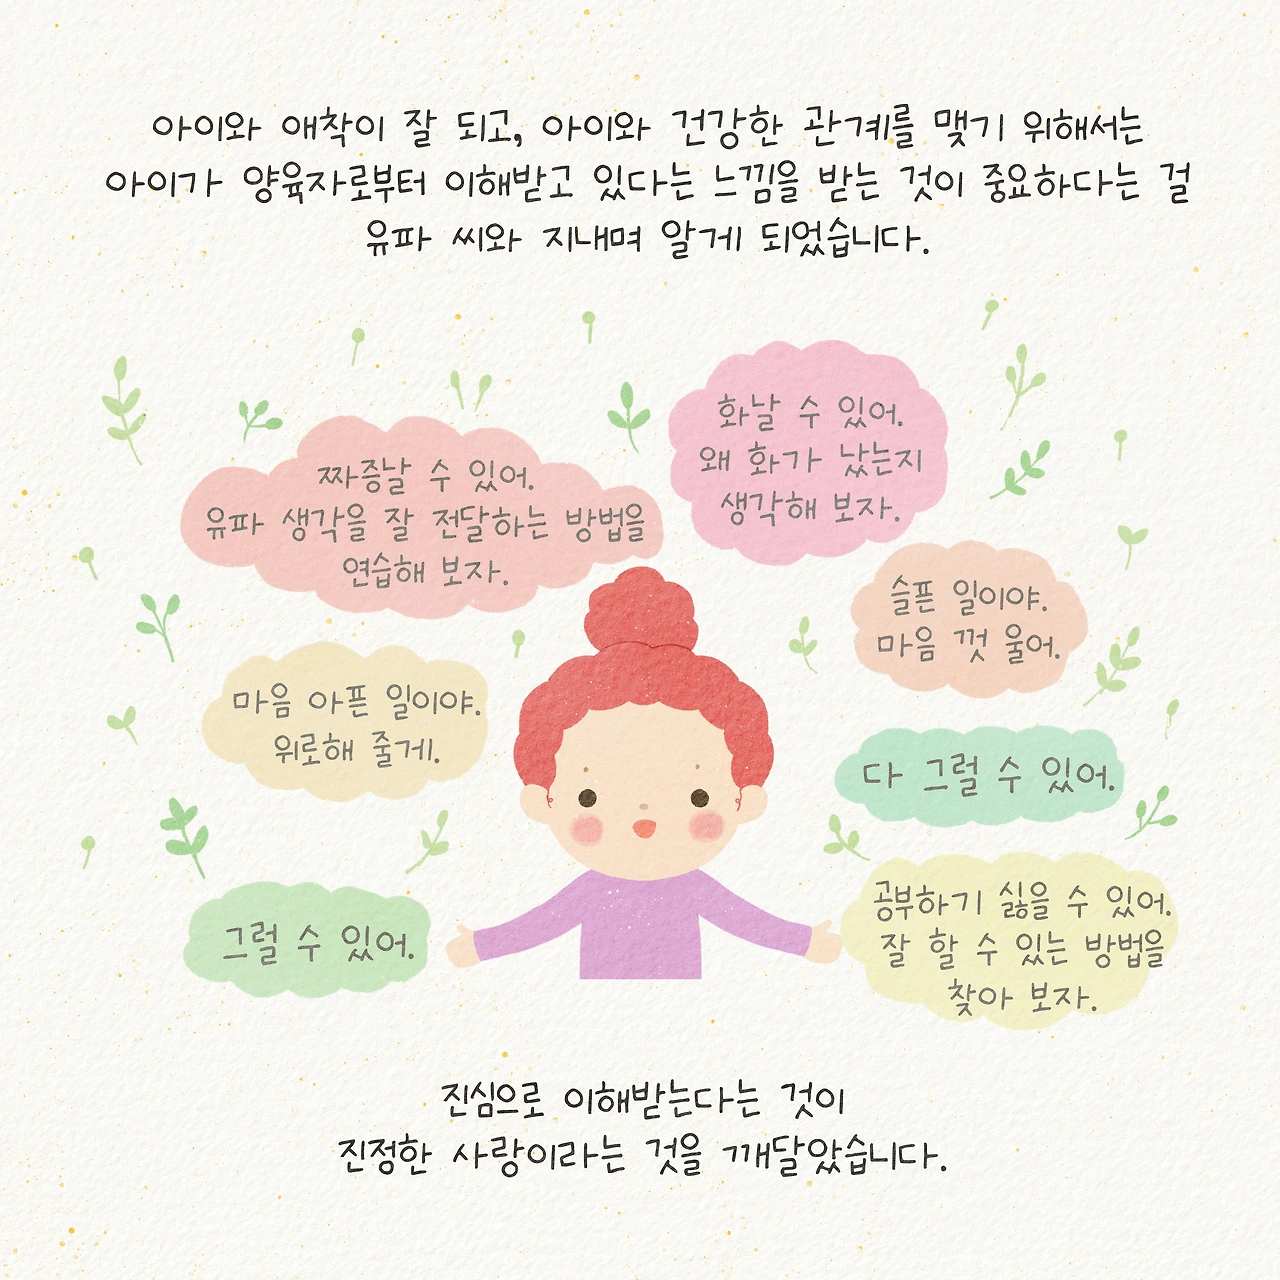 아이와 애착이 잘 되고, 아이와 건강한 관계를 맺기 위해서는
아이가 양육자로부터 이해받고 있다는 느낌을 받는 것이 중요하다는 걸
유파 씨와 지내며 알게 되었습니다.
짜증날 수 있어.
유파 생각을 잘 전달하는 방법을
연습해 보자.
화날 수 있어.
왜 화가 났는지
생각해 보자.
슬픈 일이야.
마음 껏 울어.
마음 아픈 일이야.
위로해 줄게.
다 그럴 수 있어.
그럴 수 있어.
공부하기 싫을 수 있어.
잘 할 수 있는 방법을
찾아 보자.
진심으로 이해받는다는 것이
진정한 사랑이라는 것을 깨달았습니다.